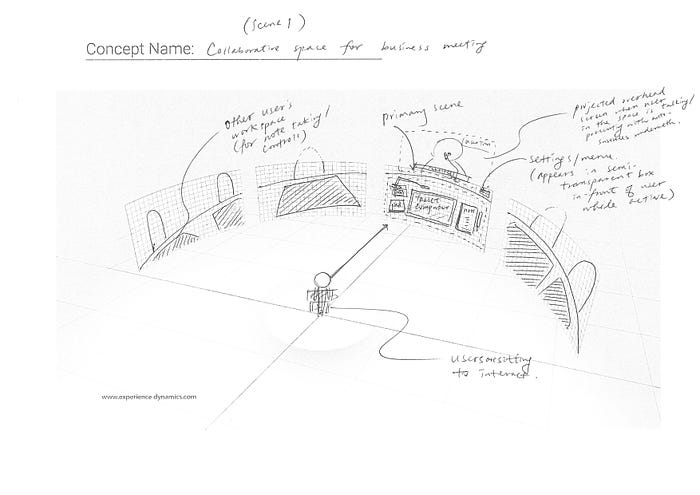 (Scene 1)
Concept Name: Collaborative space for business meeting
other user's
workspace
(for note taking/
controls)
primary scene
projected overhead
screen when user
in the space is
talking/
presenting with
subtitles underneath.
settings/menu
(appears in semi-
transparent box
in-front of user
while active)
tablet
computer
note
users are sitting
to interact.
www.experience-dynamics.com